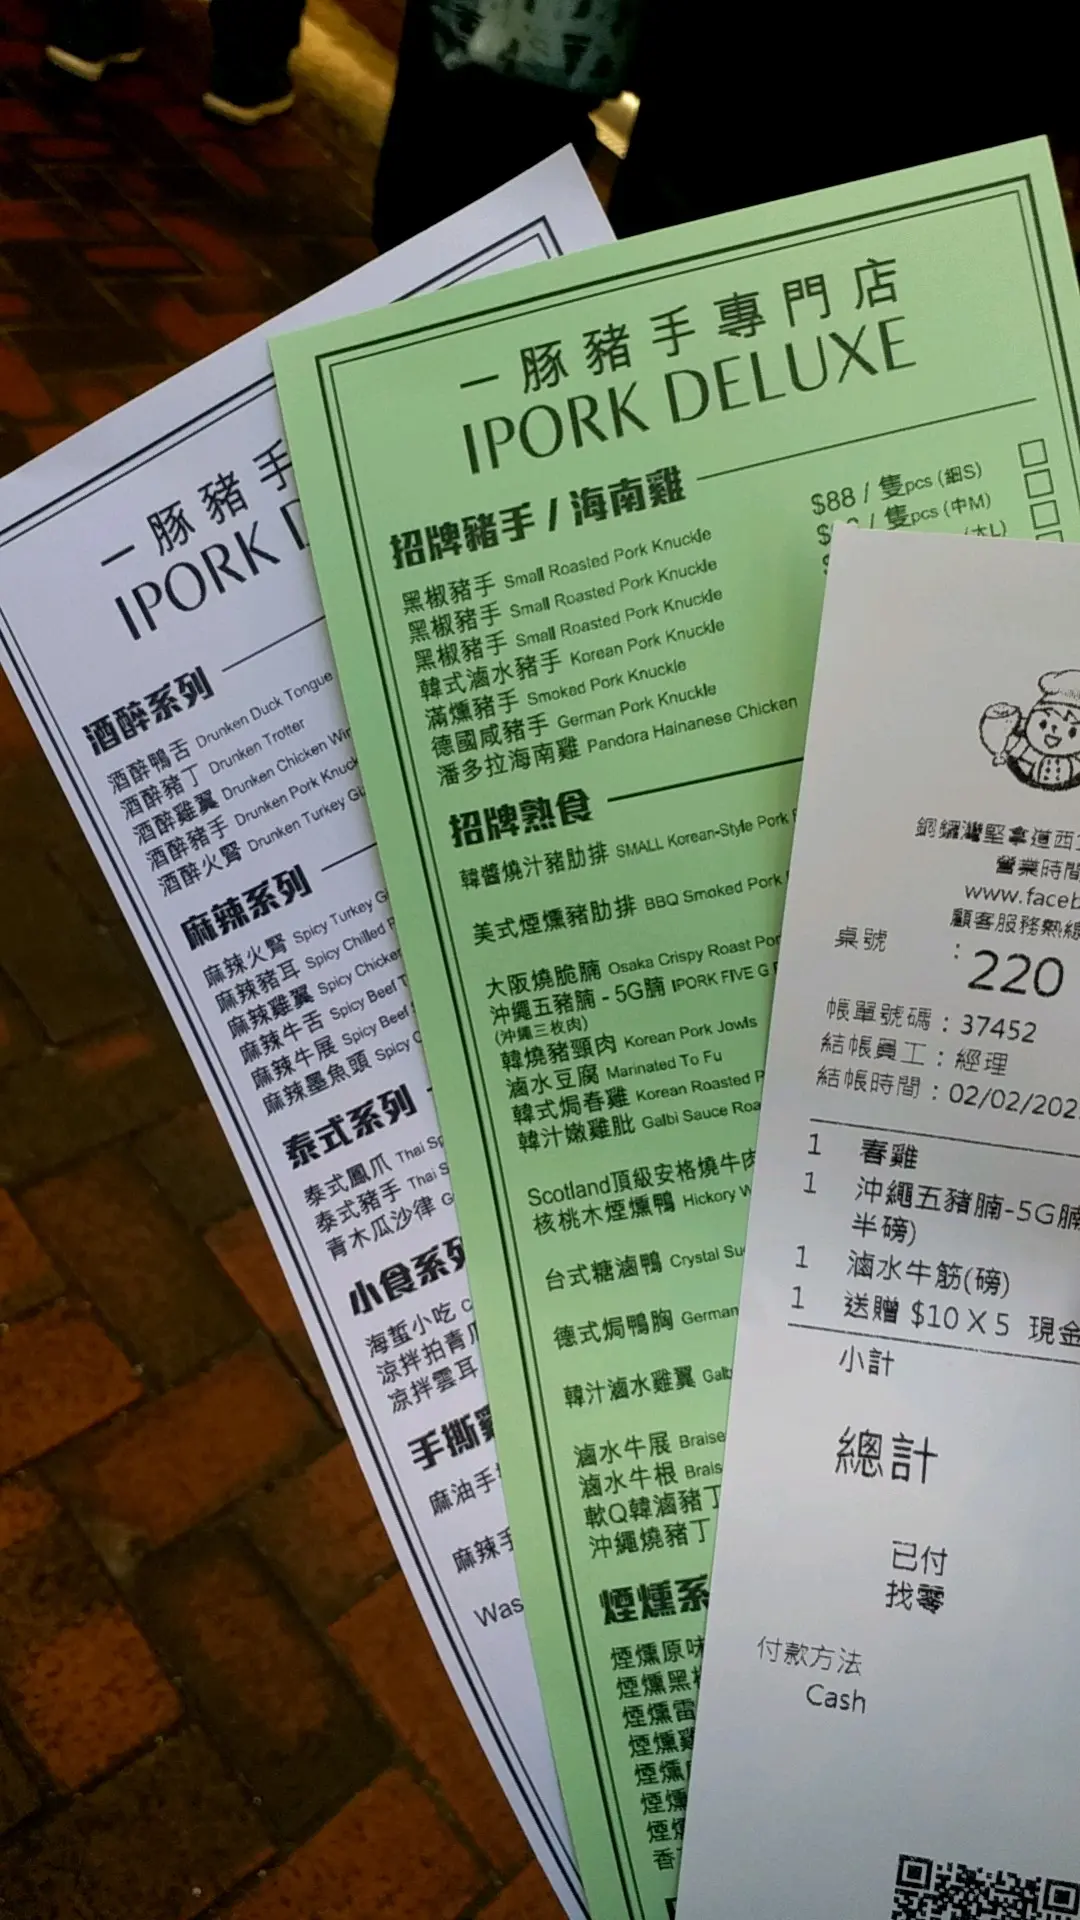 一豚豬手
IPORK
酒醉系列
酒醉鴨舌 Drunken Duck Tongue
酒醉豬丁 Drunken Trotter
酒醉雞翼 Drunken Chicken
酒醉豬手 Drunken Pork
酒醉火腎 Drunken Turkey
麻辣系列
麻辣火腎 Spicy Turkey
麻辣豬耳 Spicy Chilled
麻辣雞翼 Spicy Chicken
麻辣牛舌 Spicy Beef
麻辣牛展 Spicy Beef
麻辣墨魚頭 Spicy
泰式系列
泰式鳳爪 Thai
泰式豬手 Thai
青木瓜沙律
小食系列
海蜇小吃
涼拌拍青瓜
涼拌雲耳
手撕
麻油手
麻辣手
一豚豬手專門店
IPORK DELUXE
招牌豬手 / 海南雞
黑椒豬手 Small Roasted Pork Knuckle $88 / 隻pcs (細S)
黑椒豬手 Small Roasted Pork Knuckle / 隻pcs (中M)
黑椒豬手 Small Roasted Pork Knuckle
韓式滷水豬手 Korean Pork Knuckle
滿燻豬手 Smoked Pork Knuckle
德國咸豬手 German Pork Knuckle
潘多拉海南雞 Pandora Hainanese Chicken
招牌熟食
韓醬燒汁豬肋排 SMALL Korean-Style Pork
美式煙燻豬肋排 BBQ Smoked Pork
大阪燒脆腩 Osaka Crispy Roast
沖繩五豬腩 - 5G腩 IPORK FIVE G
(沖繩三枚肉)
韓燒豬頸肉 Korean Pork Jowls
滷水豆腐 Marinated To Fu
韓式焗春雞 Korean Roasted
韓汁嫩雞肶 Galbi Sauce
Scotland頂級安格燒牛肉
核桃木煙燻鴨 Hickory
台式糖滷鴨 Crystal
德式焗鴨胸 German
韓汁滷水雞翼
滷水牛展
滷水牛根
軟Q韓滷豬丁
沖繩燒豬丁
煙燻系
煙燻原味
煙燻黑
煙燻雷
煙燻雞
煙燻
煙燻
煙燻
香
銅鑼灣堅拿道西
營業時間
www.faceb
顧客服務熱線
桌號 : 220
帳單號碼 : 37452
結帳員工 : 經理
結帳時間 : 02/02/202
1 春雞
1 沖繩五豬腩-5G腩
半磅)
1 滷水牛筋(磅)
1 送贈 $10 X 5 現金
小計
總計
已付
找零
付款方法
Cash